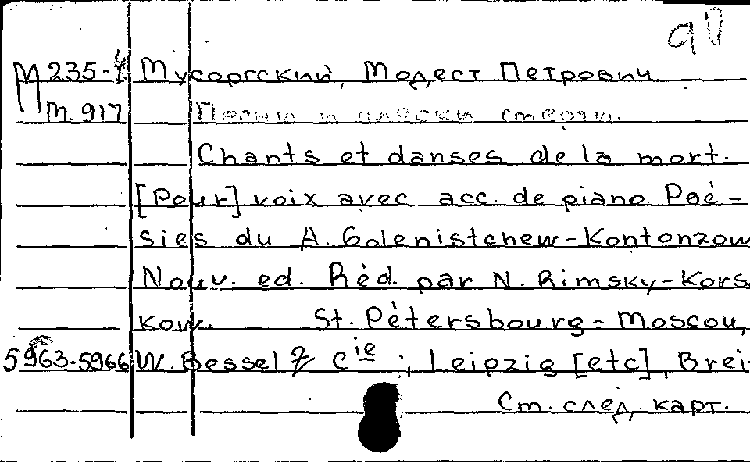 90
М 235-4 Мусоргский, Модест Петрович
М. 917 Песни и пляски смерти.
Chants et danses de la mort.
[Pour] voix avec acc. de piano Poé-
sies du A. Golenistchew-Kontonzow
Nouv. ed. Réd. par N. Rimsky-Kors
kow. St. Pétersbourg - Moscou,
5963-5966 W. Bessel & Cie; Leipzig [etc], Brei
См. след. карт.